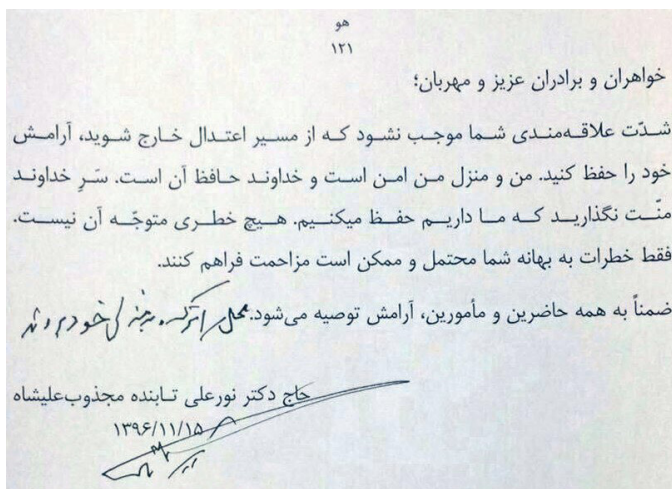 هو
۱۲۱
خواهران و برادران عزیز و مهربان؛
شدّت علاقه‌مندی شما موجب نشود که از مسیر اعتدال خارج شوید، آرامش
خود را حفظ کنید. من و منزل من امن است و خداوند حافظ آن است. سَرِ خداوند
منّت نگذارید که ما داریم حفظ میکنیم. هیچ خطری متوجّه آن نیست.
فقط خطرات به بهانه شما محتمل و ممکن است مزاحمت فراهم کنند.
ضمناً به همه حاضرین و مأمورین، آرامش توصیه می‌شود. محل را ترک و به خانه های خود بروند
حاج دکتر نورعلی تابنده مجذوب‌علیشاه
۱۳۹۶/۱۱/۱۵